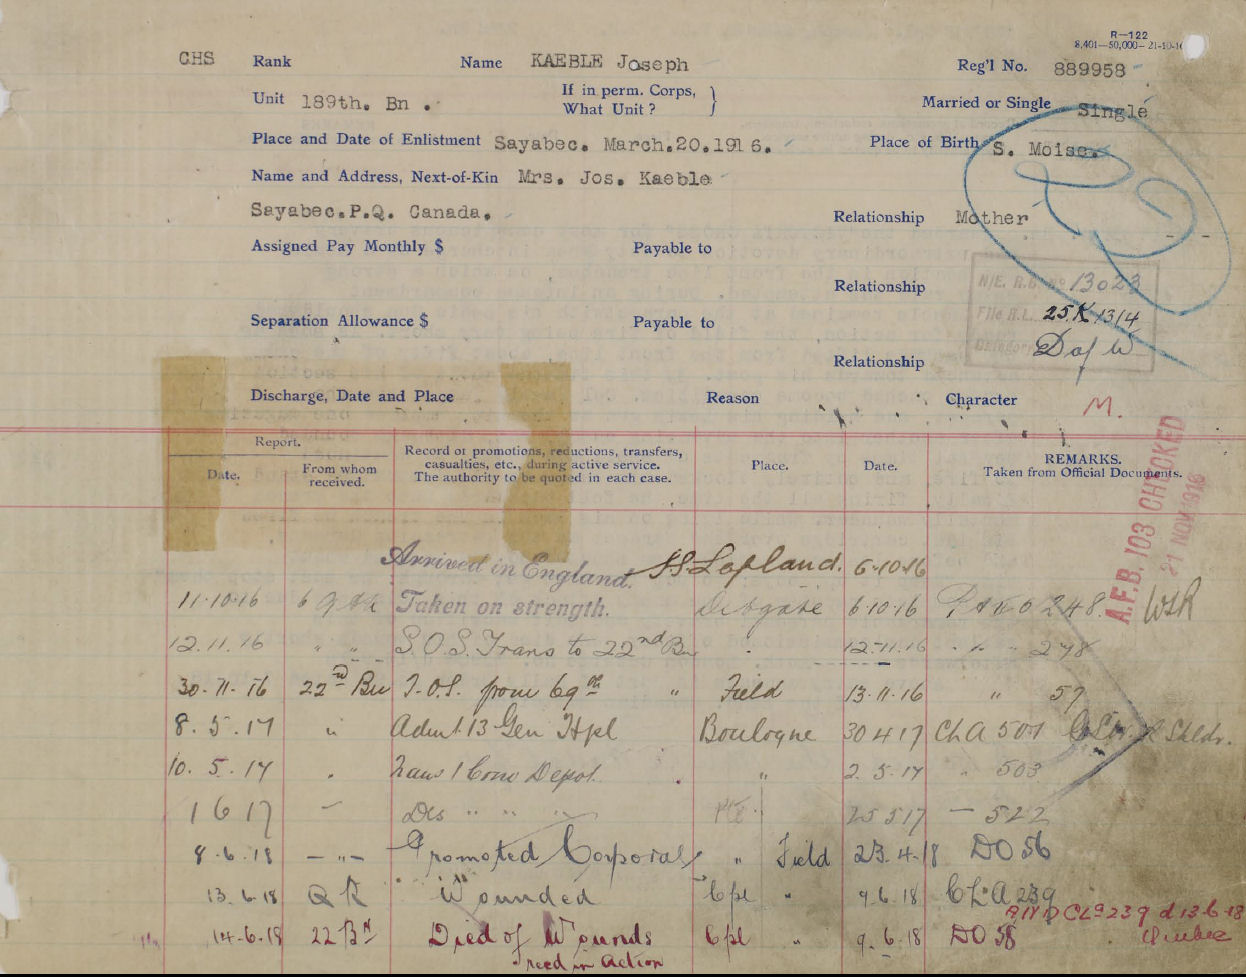 R—122
8,401—50,000— 21-10-1
CHS Rank Name KAEBLE Joseph Reg'l No. 889958
Unit 189th. Bn . If in perm. Corps, What Unit ? Married or Single Single
Place and Date of Enlistment Sayabec. March.20.1916. Place of Birth S. Moise.
Name and Address, Next-of-Kin Mrs. Jos. Kaeble
Sayabec.P.Q. Canada. Relationship Mother
Assigned Pay Monthly $ Payable to
N/E. R.B. No 13023
Relationship
File R.L. 25.K 1314
Separation Allowance $ Payable to
Category D of W
Relationship
Discharge, Date and Place Reason Character M.
Report.
Date. From whom received. Record of promotions, reductions, transfers, casualties, etc., during active service. The authority to be quoted in each case. Place. Date. REMARKS. Taken from Official Documents.
A.F.B. 103 CHECKED
21 NOV 1918
Arrived in England. SS Lapland. 6·10·16
11·10·16 69th Taken on strength. 6·10·16 248.
12.11.16 " " S.O.S. Trans to 22nd Bn 12-11-16 " " " 278
30-11-16 22nd Bn T.O.S. from 69th " Field 13·11·16 " 57
8. 5. 17 " Admt. 13 Gen Hpl Boulogne 30 4 17 ChA 501 Shldr.
10. 5. 17 " Trans 1 Conv Depot. " 2. 5. 17 " 503
1 6 17 Dis " " " 25 5 17 — 522
8·6·18 — " — Promoted Corporal " Field 23.4.18 DO 56
13.6.18 Wounded Cpl " 9.6.18 CLA 239
CLa 239 d 13-6-18
14-6-18 22 Bn Died of Wounds Cpl " 9.6.18 DO 58
in Action